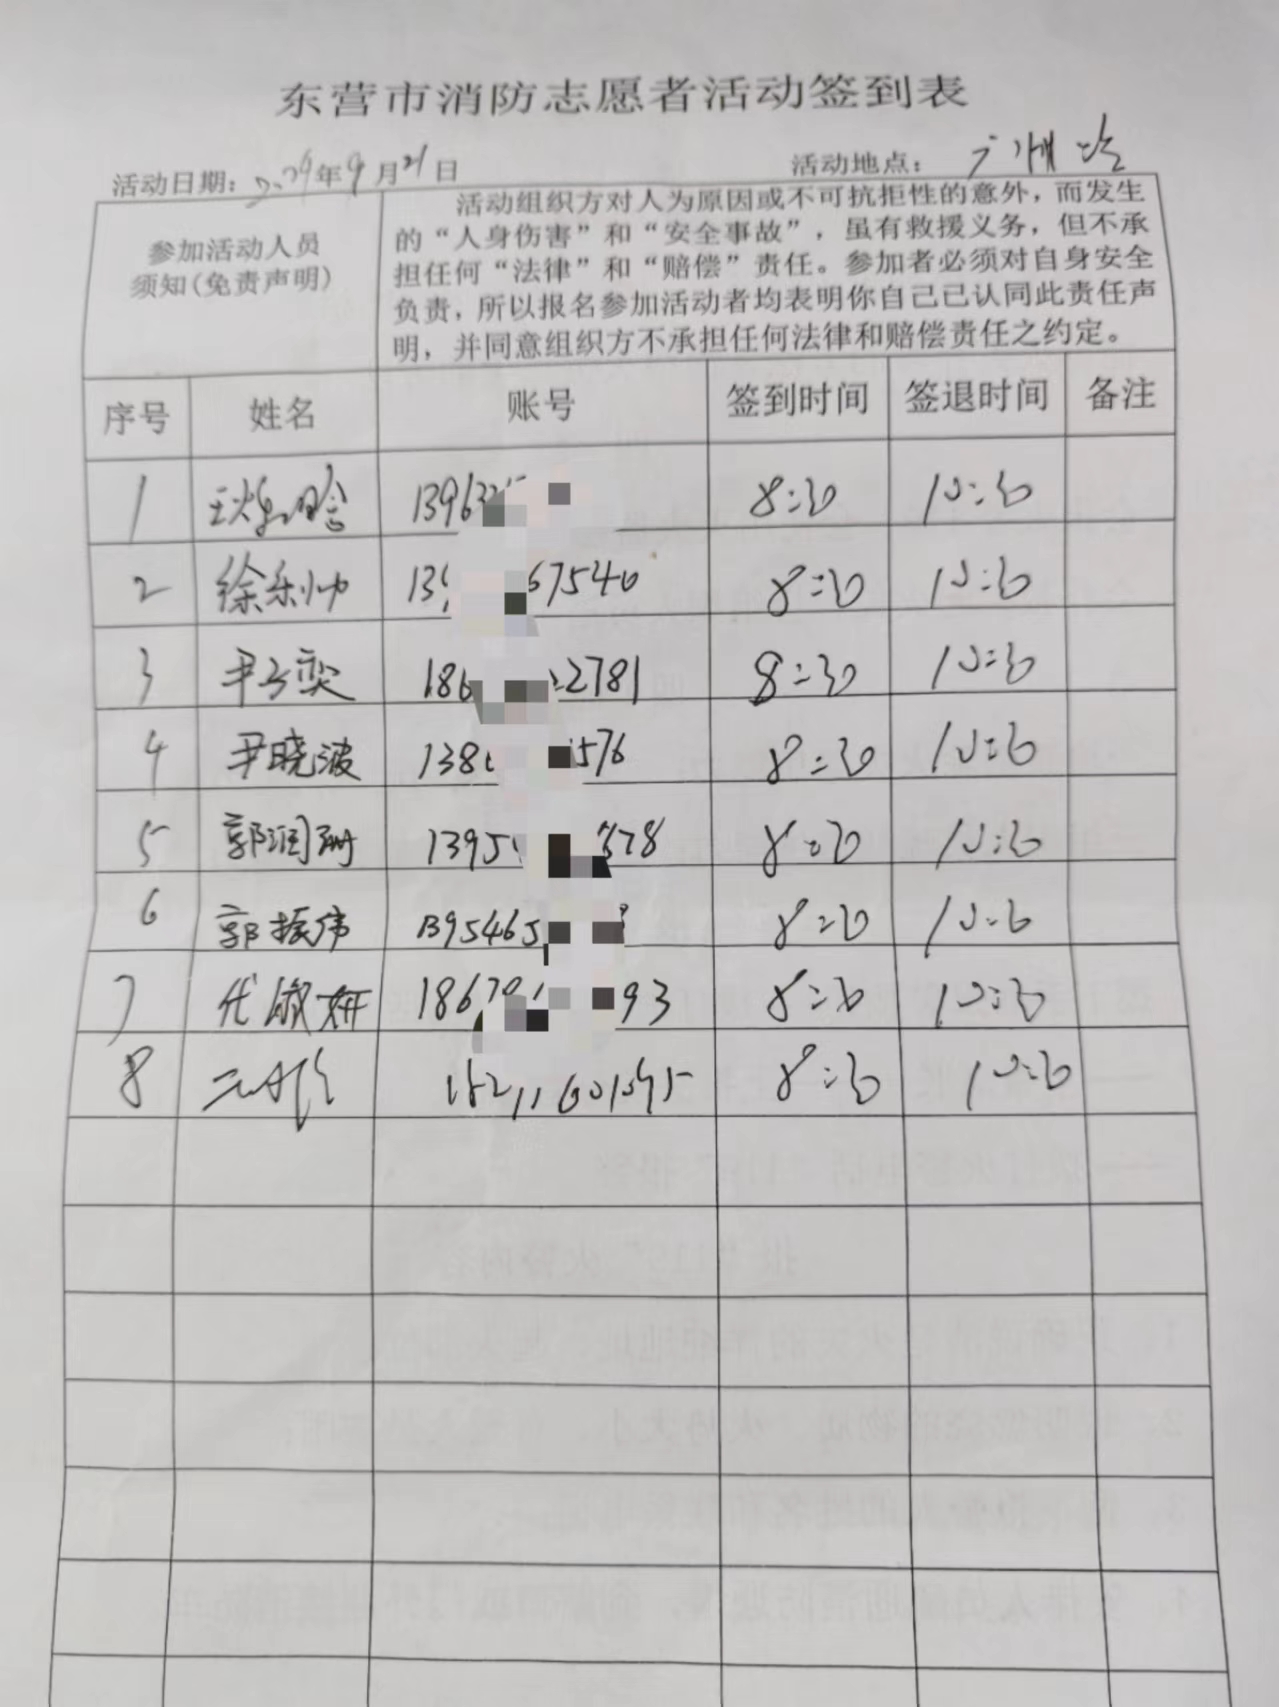 东营市消防志愿者活动签到表
活动日期: 年9月21日 活动地点:
参加活动人员
须知(免责声明)
活动组织方对人为原因或不可抗拒性的意外，而发生
的“人身伤害”和“安全事故”，虽有救援义务，但不承
担任何“法律”和“赔偿”责任。参加者必须对自身安全
负责，所以报名参加活动者均表明你自己已认同此责任声
明，并同意组织方不承担任何法律和赔偿责任之约定。
序号 姓名 账号 签到时间 签退时间 备注
1 1396 8:30 10:30
2 徐利帅 13 67540 8:30 10:30
3 尹子奕 186 2781 8:30 10:30
4 尹晓波 138 576 8:30 10:30
5 郭润珊 1395 378 8:30 10:30
6 郭振伟 1395465 8:30 10:30
7 代淑妍 18670 93 8:30 10:30
8 8:30 10:30